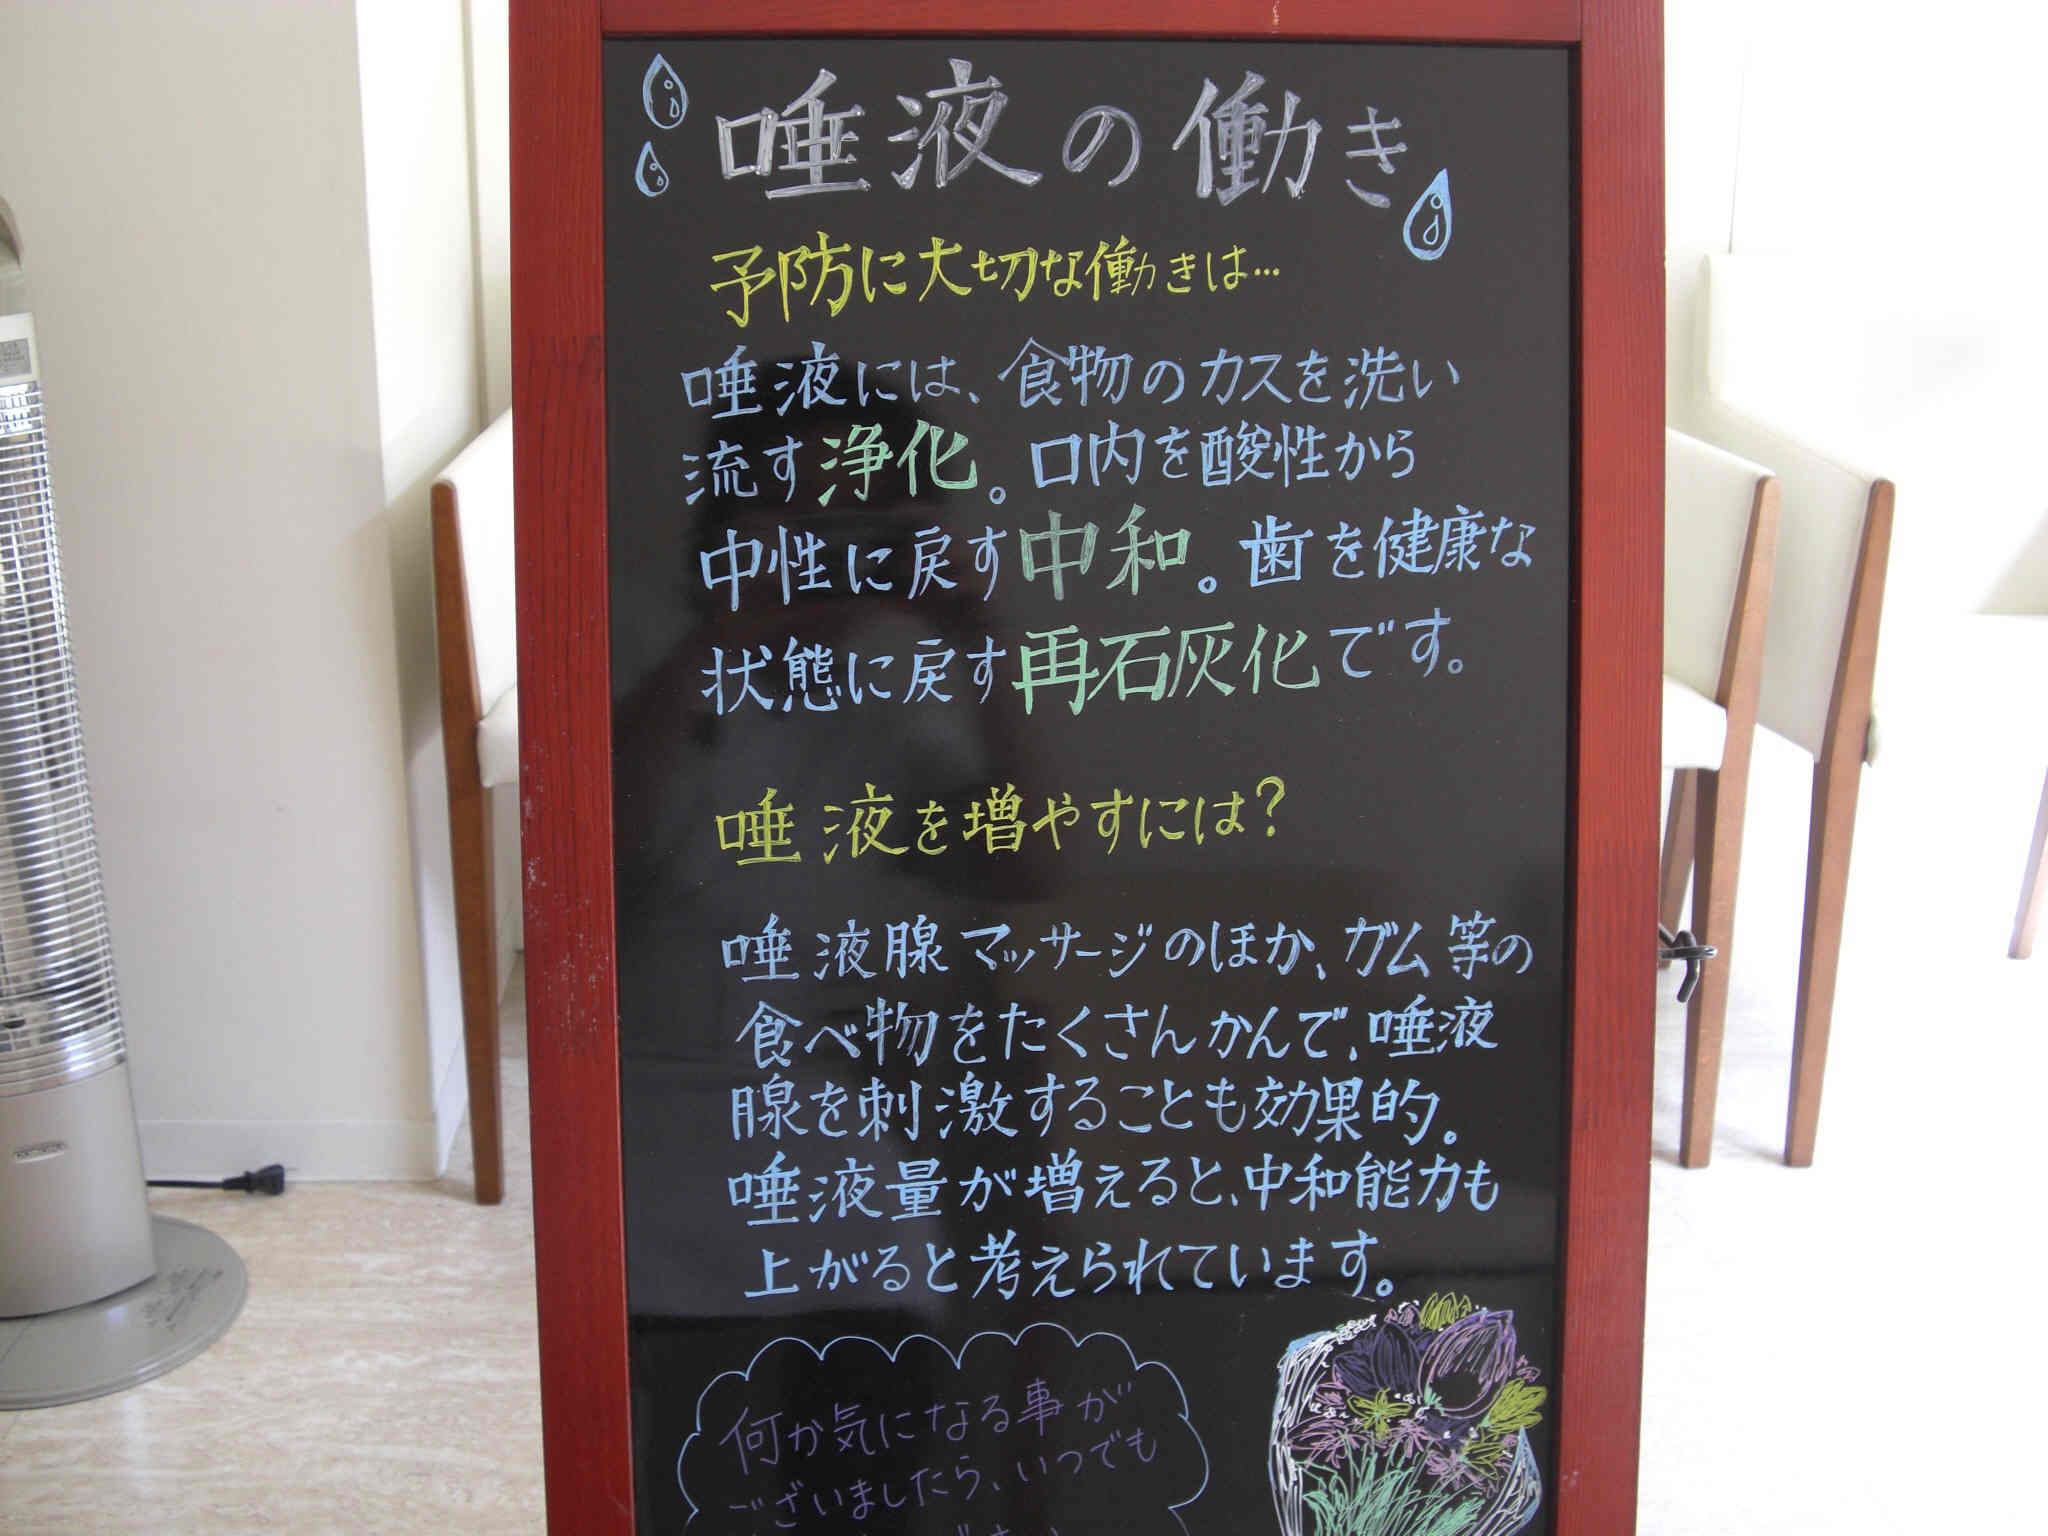 唾液の働き
予防に大切な働きは…
唾液には、食物のカスを洗い
流す浄化。口内を酸性から
中性に戻す中和。歯を健康な
状態に戻す再石灰化です。
唾液を増やすには?
唾液腺マッサージのほか、ガム等の
食べ物をたくさんかんで、唾液
腺を刺激することも効果的。
唾液量が増えると、中和能力も
上がると考えられています。
何か気になる事が
ございましたら、いつでも